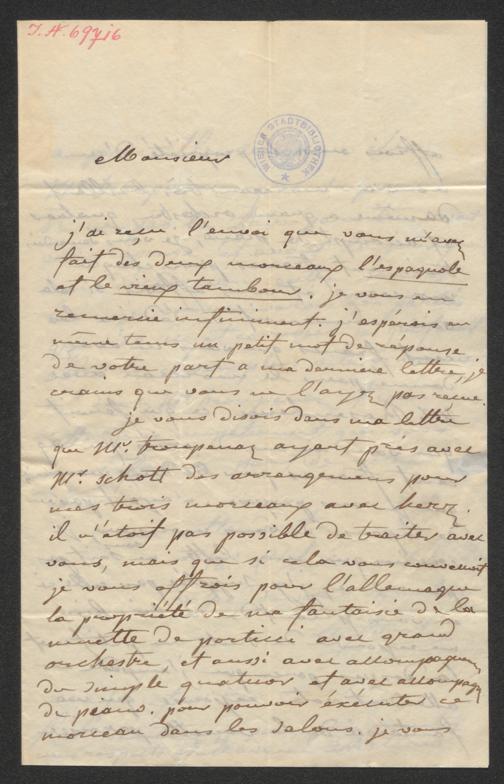 J.N. 69716
WIENER STADTBIBLIOTHEK
Monsieur
j'ai reçu l'envoi que vous m'avez
fait des deux morceaux l'espagnole
et le vieux tambour. je vous en
remercie infiniment. j'espérois en
même tems un petit mot de réponse
de votre part a ma derniere lettre, je
crains que vous ne l'ayez pas reçue.
je vous disois dans ma lettre
que Mr. troupenaz ayant pris avec
Mr. schott des arrangemens pour
mes trois morceaux avec herz.
il n'étoit pas possible de traiter avec
vous, mais que si cela vous convenoit
je vous offrois pour l'allemagne
la propriété de ma fantaisie de la
muette de portici avec grand
orchestre, et aussi avec accompagnem
de simple quatuor et avec accompag
de piano. pour pouvoir éxécuter ce
morceau dans les salons. je vous